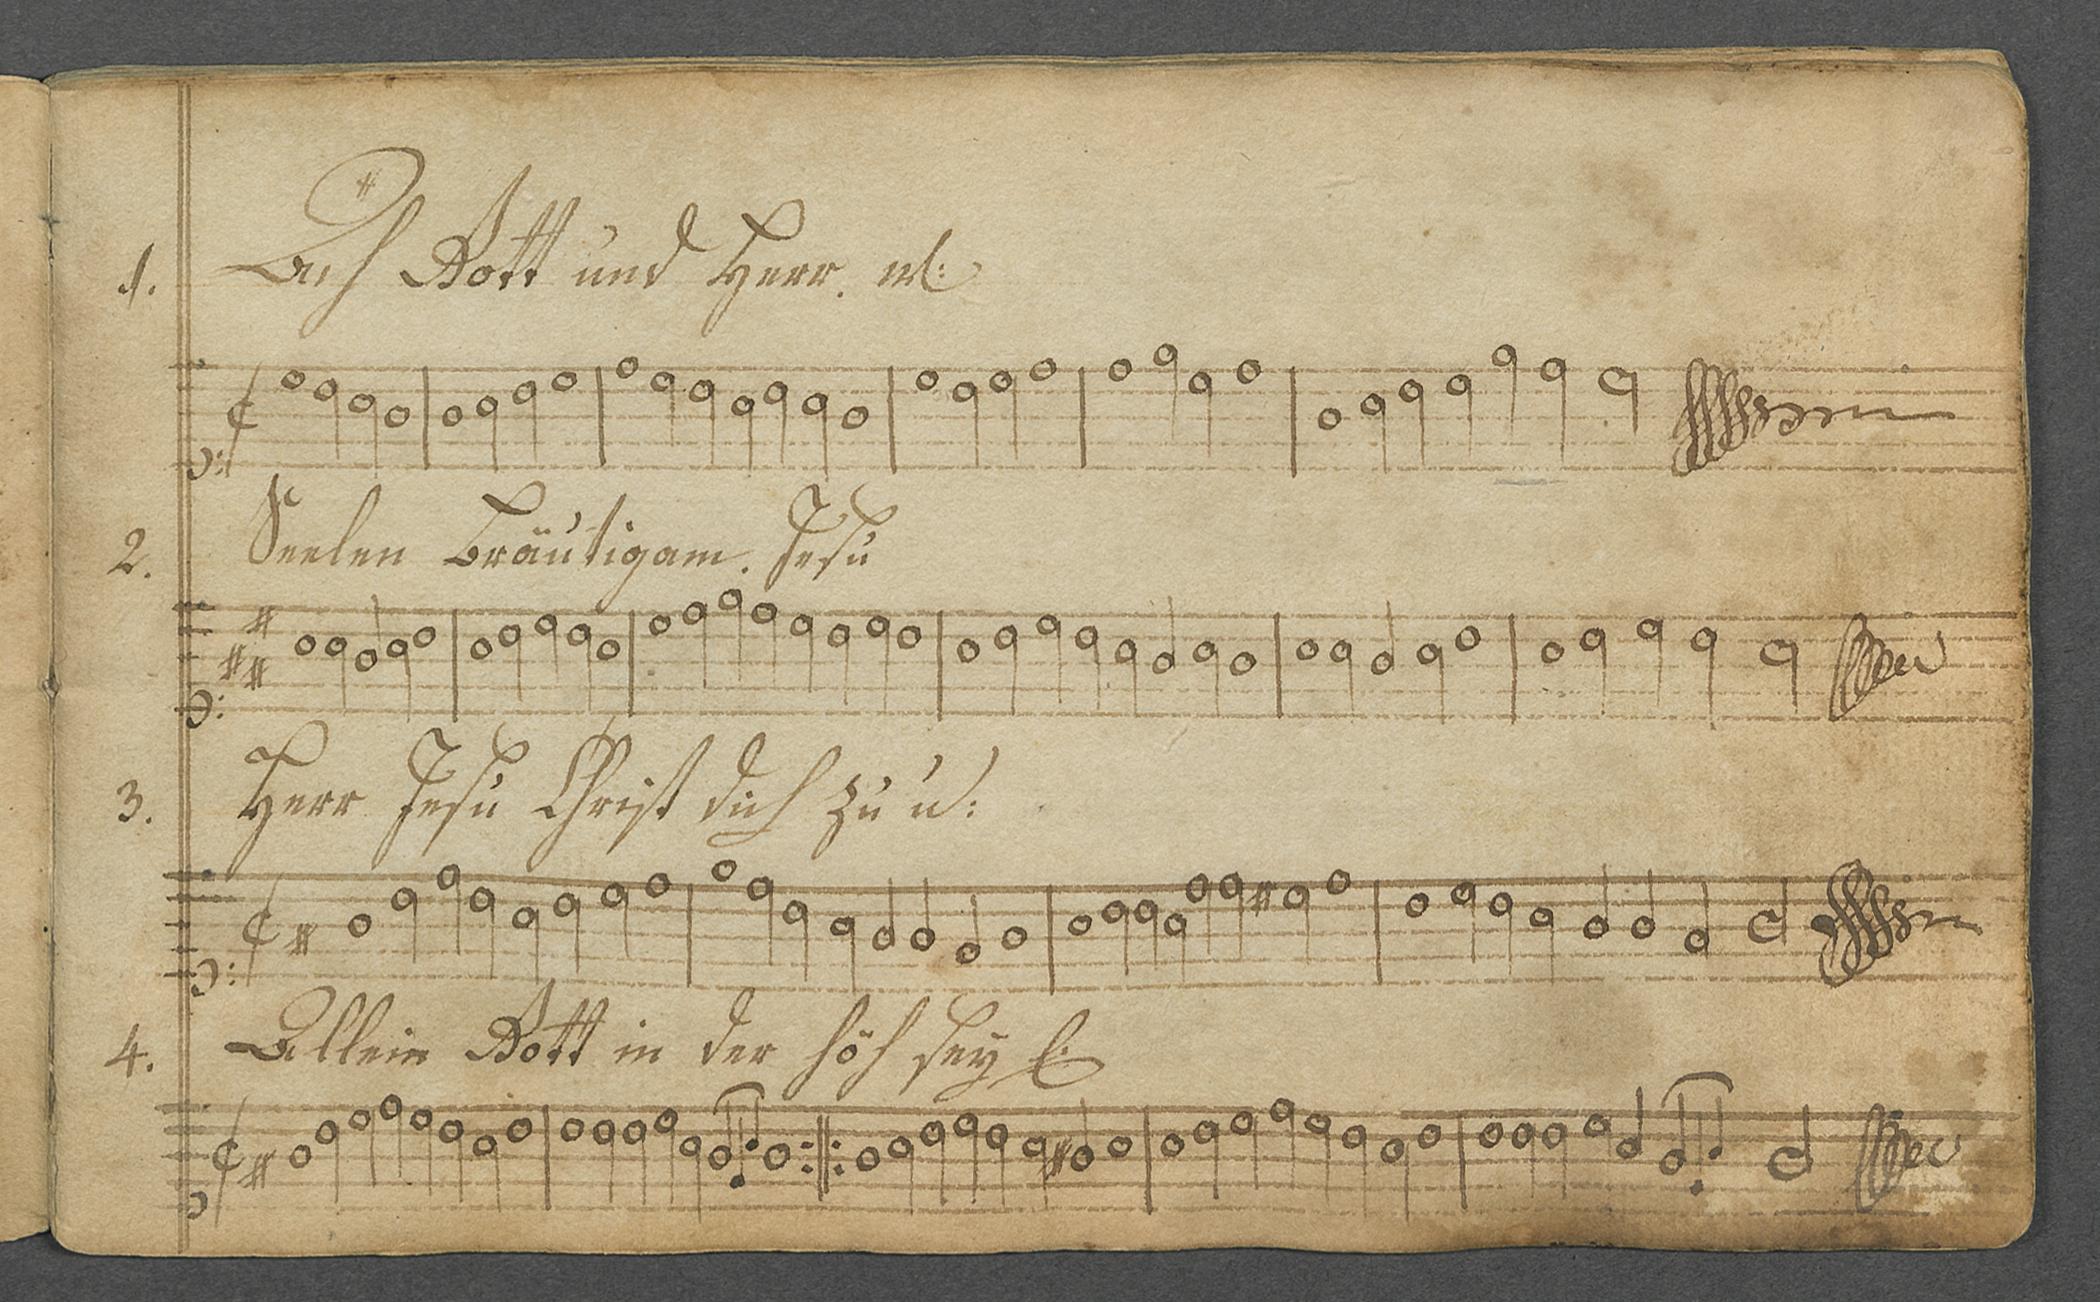 1. Ach Gott und Herr.
2. Seelen Bräutigam. Jesu
3. Herr Jesu Christ dich zu u:
4. Allein Gott in der höh sey E: